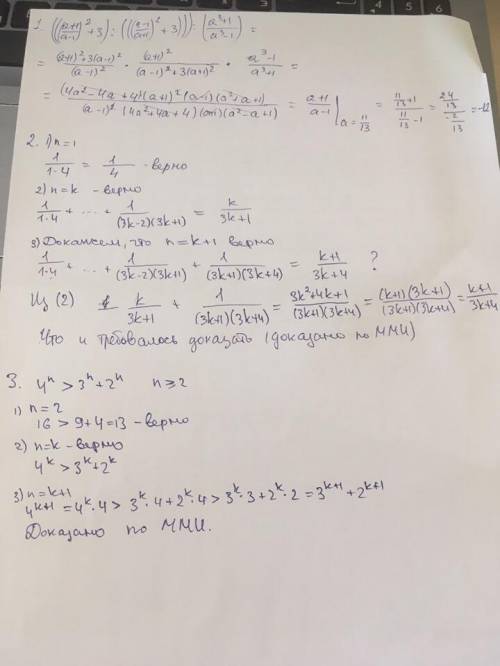 1. (((a+1)/(a-1))² + 3) : (((a-1)/(a+1))² + 3)) : (a³+1)/(a³-1) =
= ((a+1)²+3(a-1)²)/(a-1)² · (a+1)²/((a-1)²+3(a+1)²) · (a³-1)/(a³+1) =
= (4a²-4a+4)(a+1)²(a-1)(a²+a+1)/((a-1)²(4a²+4a+4)(a+1)(a²-a+1)) = (a+1)/(a-1) |a=11/13 = (11/13+1)/(11/13-1) = (24/13)/(-2/13) = -12
2. 1) n=1
1/(1·4) = 1/4 - верно
2) n=k - верно
1/(1·4) + ... + 1/((3k-2)(3k+1)) = k/(3k+1)
3) Докажем, что n=k+1 верно
1/(1·4) + ... + 1/((3k-2)(3k+1)) + 1/((3k+1)(3k+4)) = (k+1)/(3k+4) ?
Из (2) k/(3k+1) + 1/((3k+1)(3k+4)) = (3k²+4k+1)/((3k+1)(3k+4)) = (k+1)(3k+1)/((3k+1)(3k+4)) = (k+1)/(3k+4)
Что и требовалось доказать (доказано по ММИ)
3. 4ⁿ > 3ⁿ + 2ⁿ n ≥ 2
1) n = 2
16 > 9+4=13 - верно
2) n=k - верно
4ᵏ > 3ᵏ+2ᵏ
3) n=k+1
4ᵏ⁺¹ = 4ᵏ·4 > 3ᵏ·4 + 2ᵏ·4 > 3ᵏ·3 + 2ᵏ·2 = 3ᵏ⁺¹ + 2ᵏ⁺¹
Доказано по ММИ.